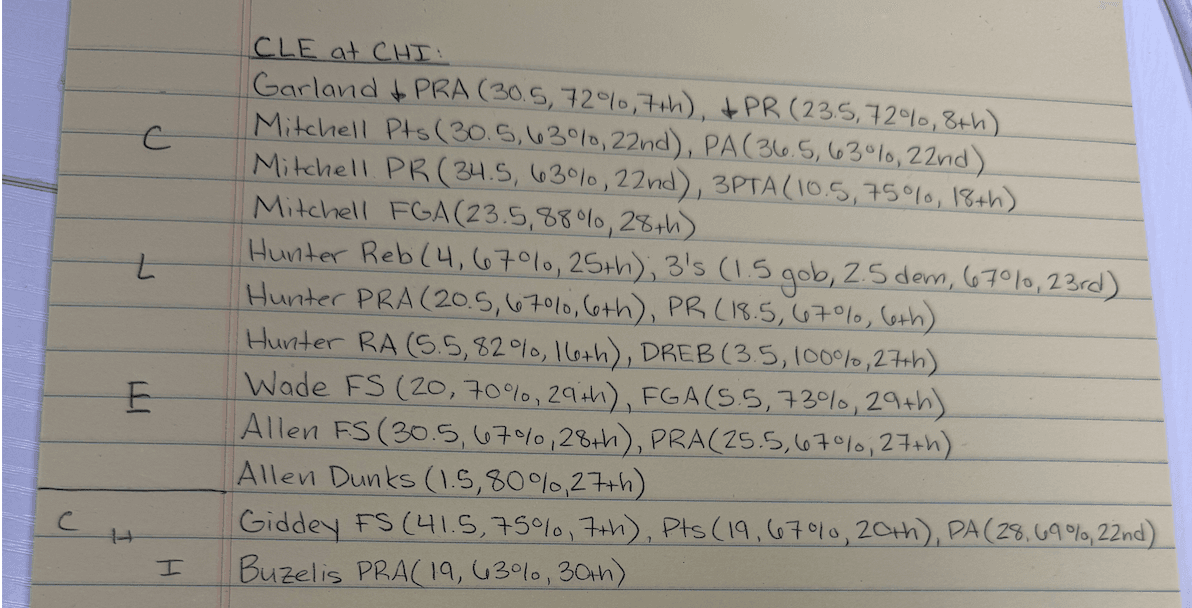 CLE at CHI:
Garland ↓ PRA (30.5, 72%, 7th), ↓ PR (23.5, 72%, 8th)
C
Mitchell Pts (30.5, 63%, 22nd), PA (36.5, 63%, 22nd)
Mitchell PR (34.5, 63%, 22nd), 3PTA (10.5, 75%, 18th)
Mitchell FGA (23.5, 88%, 28th)
L
Hunter Reb (4, 67%, 25th), 3's (1.5 gob, 2.5 dem, 67%, 23rd)
Hunter PRA (20.5, 67%, 6th), PR (18.5, 67%, 6th)
Hunter RA (5.5, 82%, 16th), DREB (3.5, 100%, 27th)
E
Wade FS (20, 70%, 29th), FGA (5.5, 73%, 29th)
Allen FS (30.5, 67%, 28th), PRA (25.5, 67%, 27th)
Allen Dunks (1.5, 80%, 27th)
C
Giddey FS (41.5, 75%, 7th), Pts (19, 67%, 20th), PA (28, 69%, 22nd)
H
I
Buzelis PRA (19, 63%, 30th)